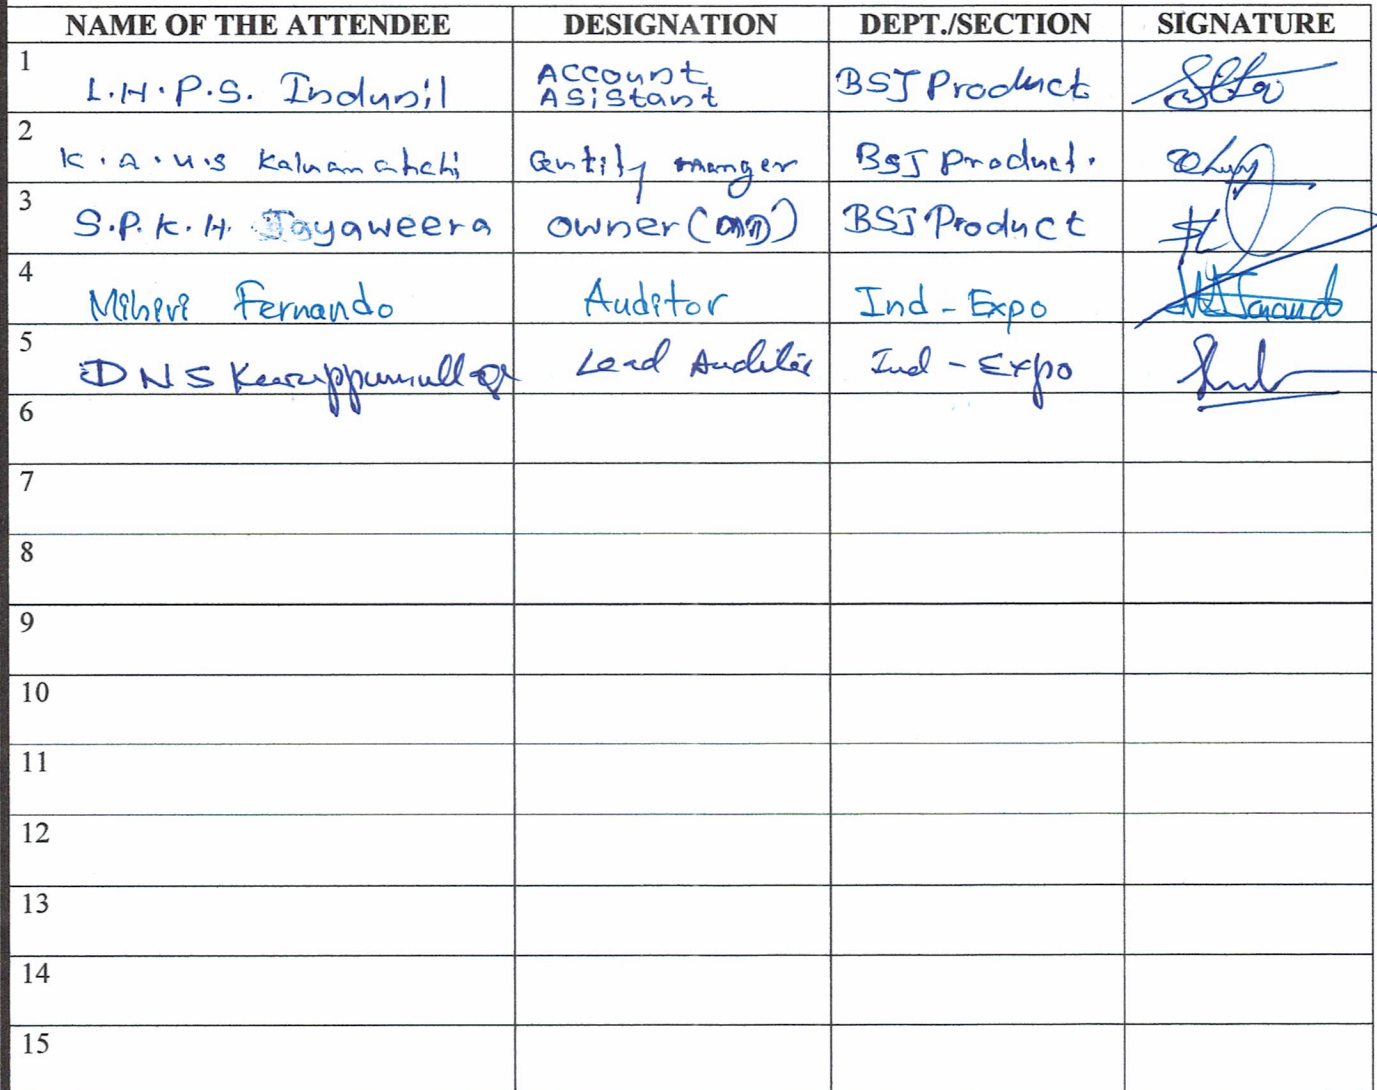 NAME OF THE ATTENDEE DESIGNATION DEPT./SECTION SIGNATURE
1 L.H.P.S. Indunil Account Asistant BSJ Product
2 K.A.U.S manger BSJ Product.
3 S.P.K.H. Jayaweera Owner (MD) BSJ Product
4 Mihiri Fernando Auditor Ind - Expo
5 D N S Lead Auditor Ind - Expo
6
7
8
9
10
11
12
13
14
15